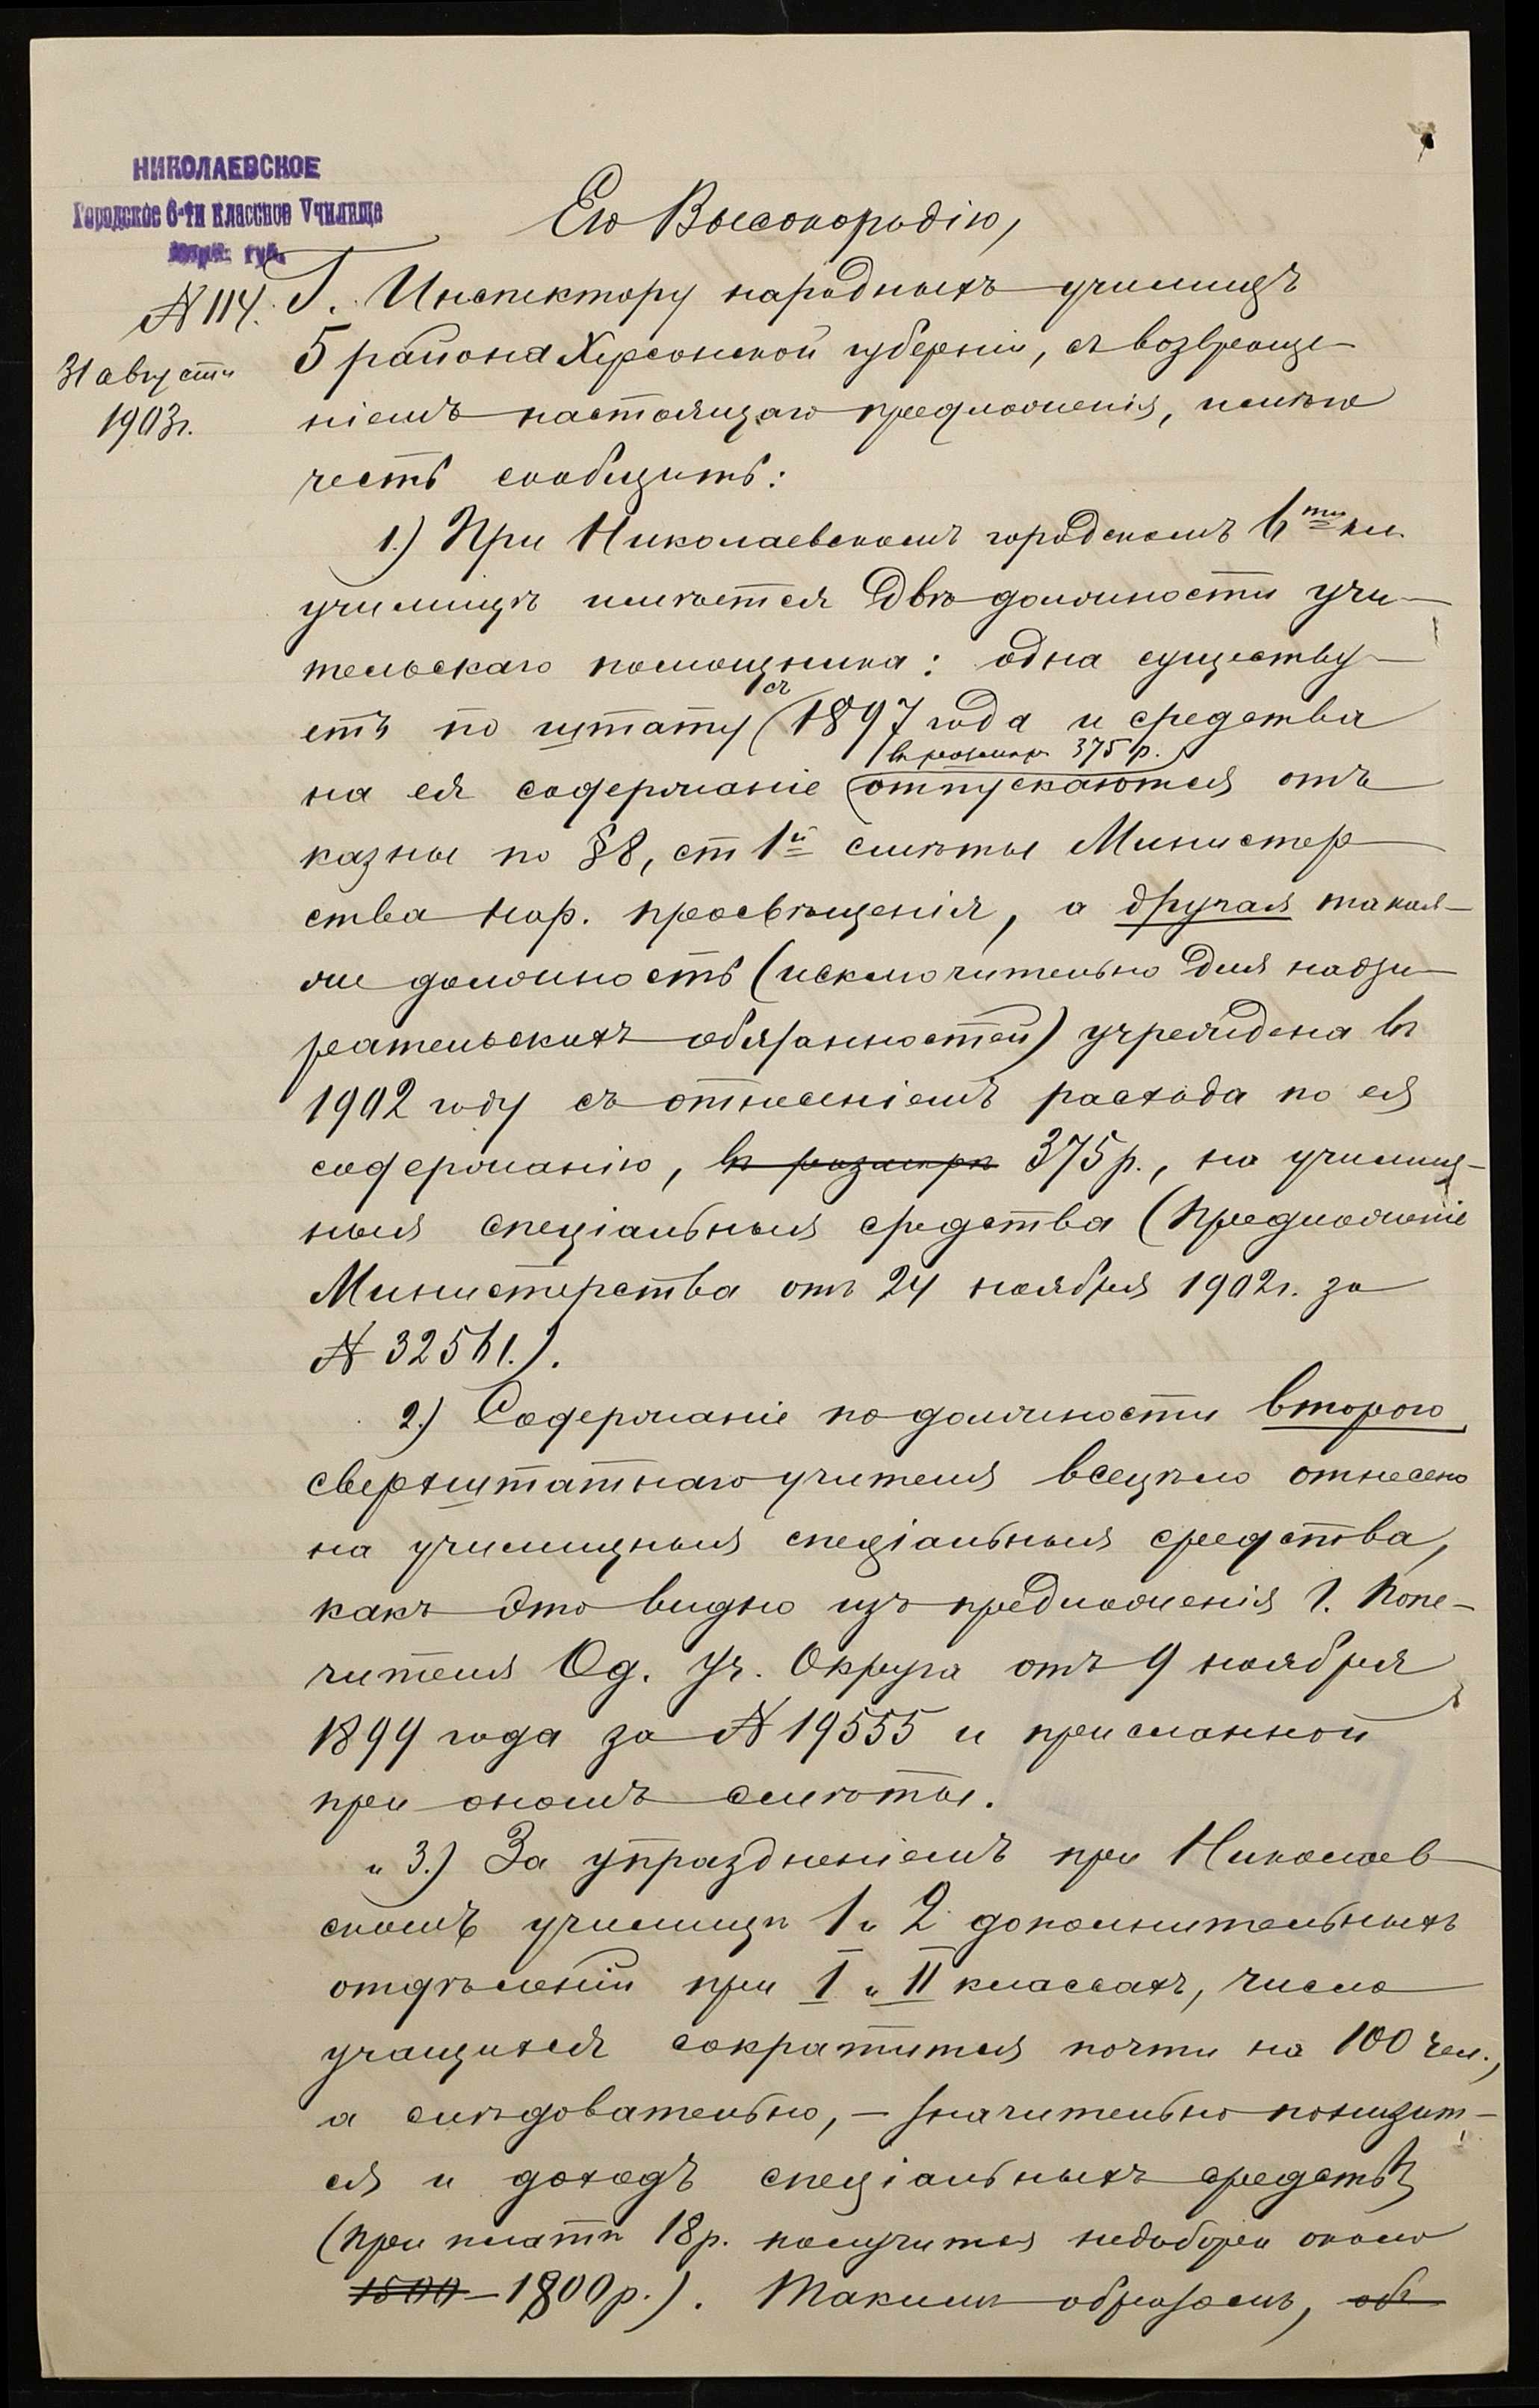 НИКОЛАЕВСКОЕ
Городское 6-ти классное Училище
Херс. губ.
№ 114.
31 августа
1903 г.
Его Высокородію,
Г. Инспектору народныхъ училищъ
5 района Херсонской губерніи, съ возвраще-
ніемъ настоящаго предложенія, имѣю
честь сообщить:
1.) При Николаевскомъ городскомъ 6ти кл.
училищѣ имѣется двѣ должности учи-
тельскаго помощника: одна существу-
етъ по штату съ 1897 года и средства
на ея содержаніе въ размѣрѣ 375 р. отпускаются отъ
казны по § 8, ст 1й смѣты Министер-
ства нар. просвѣщенія, а другая такая-
же должность (исключительно для надзи-
рательскихъ обязанностей) учреждена въ
1902 году съ отнесеніемъ расхода по ея
содержанію, въ размѣрѣ 375 р., на училищ-
ныя спеціальныя средства (предложеніе
Министерства отъ 24 ноября 1902 г. за
№ 32561.).
2.) Содержаніе по должности второго
сверхштатнаго учителя всецѣло отнесено
на училищныя спеціальныя средства,
какъ это видно изъ предложенія г. Попе-
чителя Од. Уч. Округа отъ 9 ноября
1899 года за № 19555 и присланной
при ономъ смѣты.
и 3.) За упраздненіемъ при Николаев
скомъ училищѣ 1 и 2 дополнительныхъ
отдѣленій при I и II классахъ, число
учащихся сократится почти на 100 чел.,
а слѣдовательно, – значительно понизит-
ся и доходъ спеціальныхъ средствъ
(при платѣ 18 р. получится недоборъ около
1500 – 1800 р.). Такимъ образомъ, об